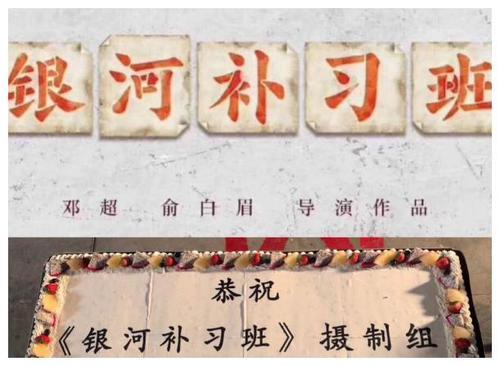 银河补习班
邓超 俞白眉 导演作品
恭祝
《银河补习班》摄制组